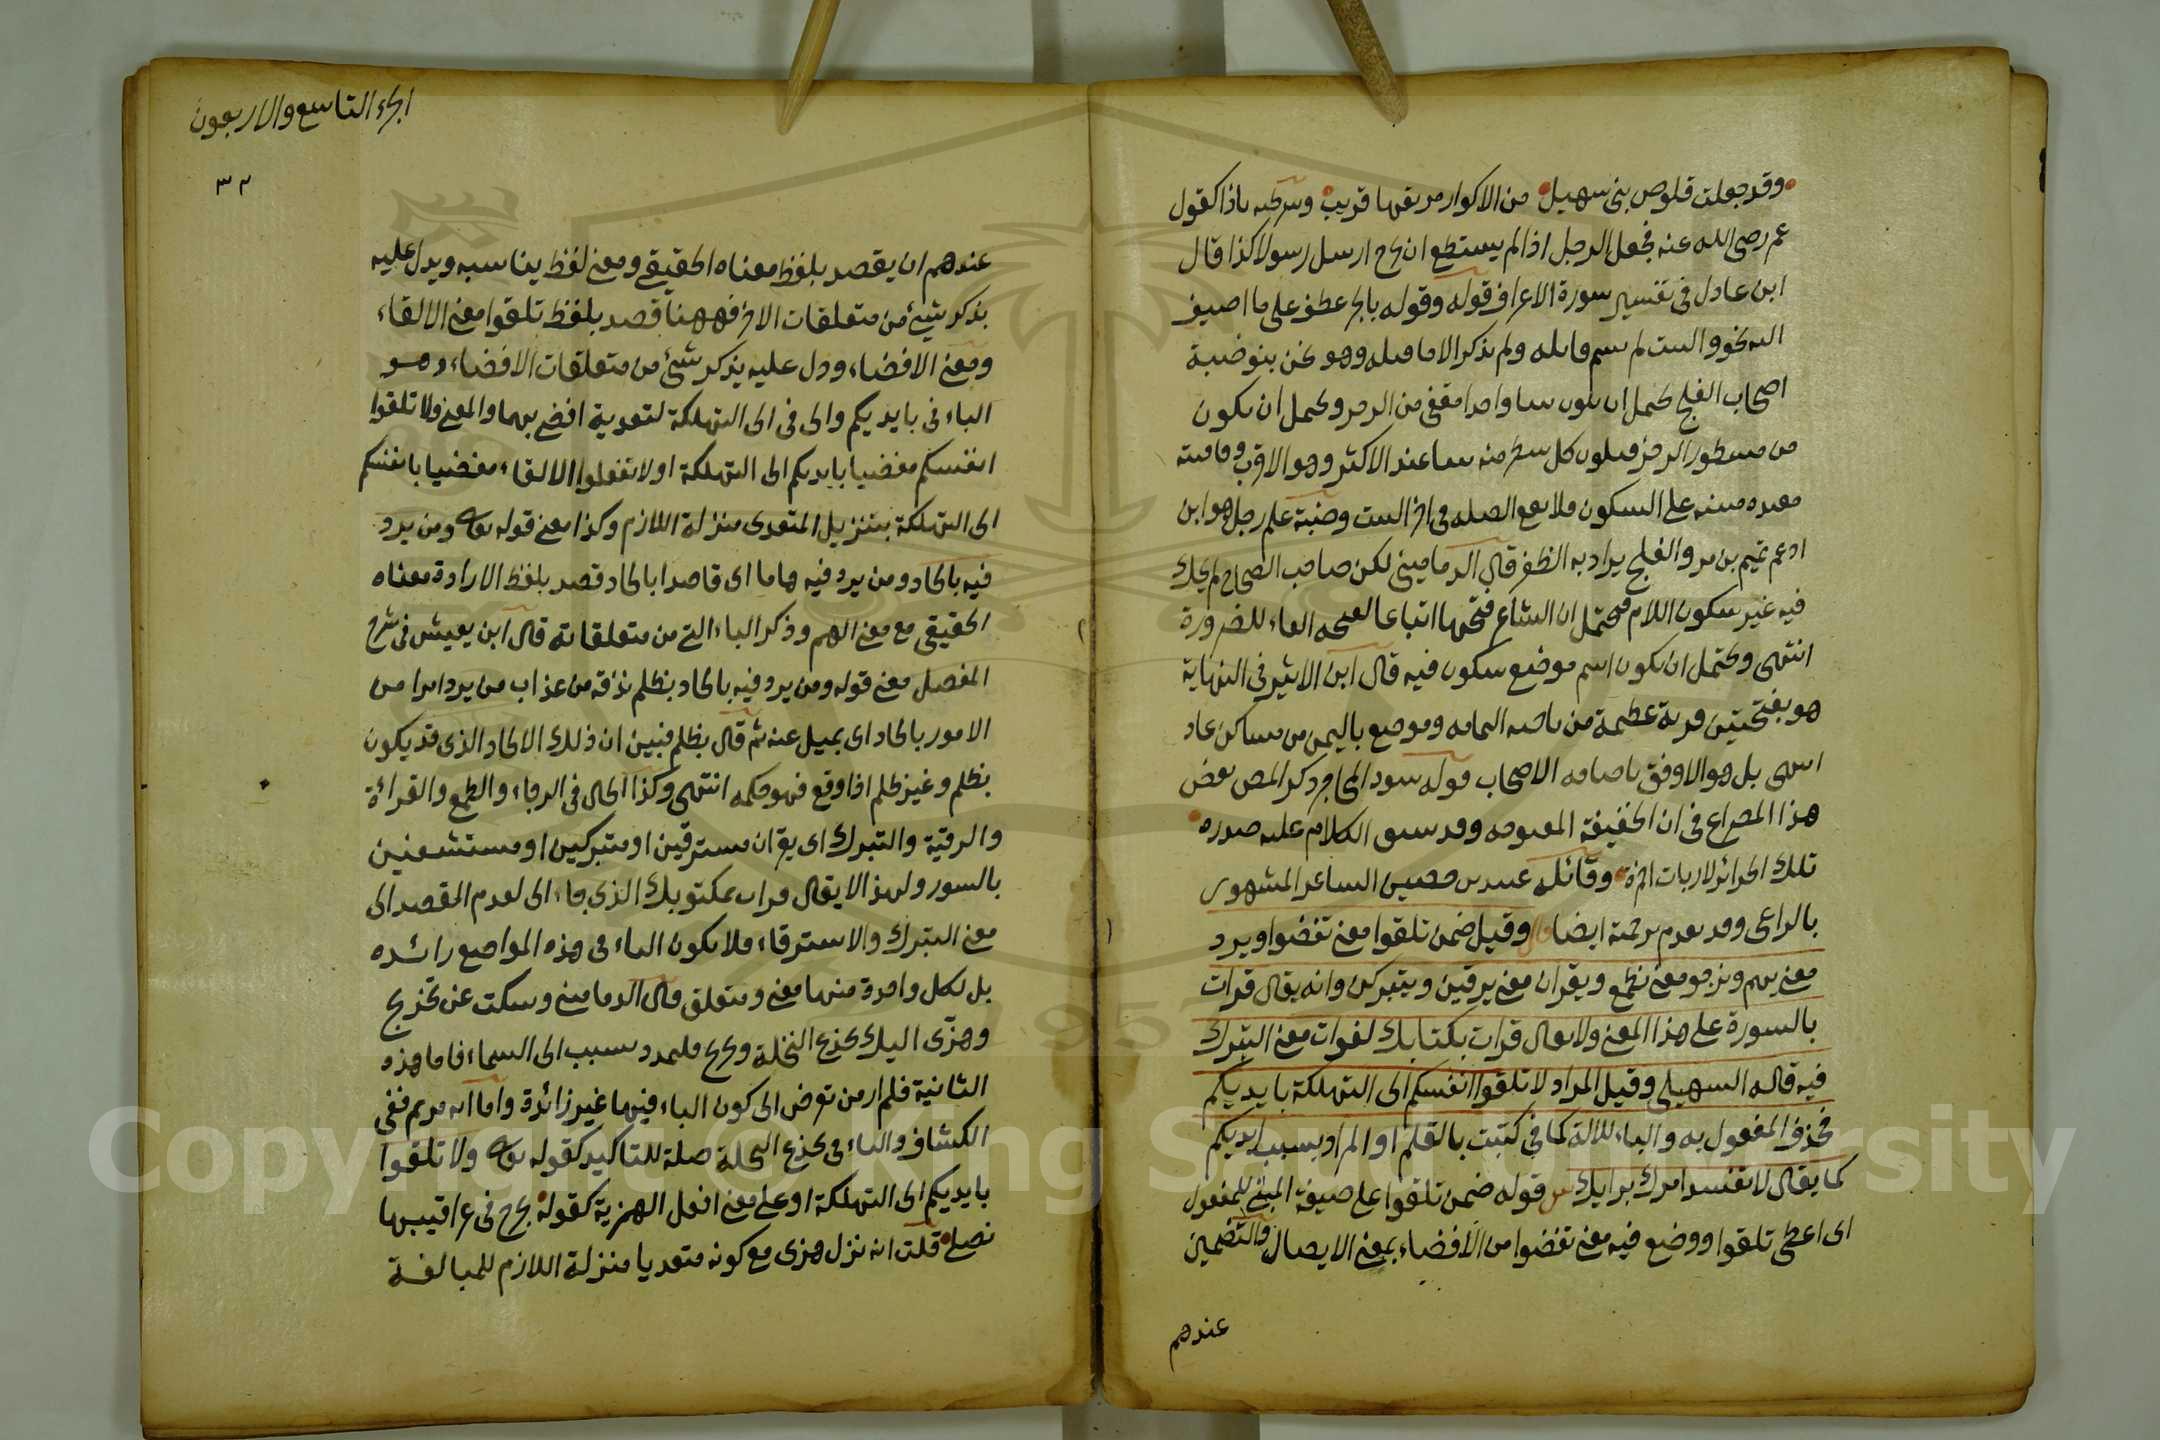 وقد جعلت قلوص بني سهيل من الاكوار مرتعها قريب وشرطه باذا كقول
عم رضي الله عنه فجعل الرجل اذا لم يستطع ان يخرج ارسل رسولا كذا قال
ابن عادل في تفسير سورة الاعراف قوله وقوله بالجر عطف على ما اضيف
اليه نحو والبيت لم يسم قائله ولم يذكر الا ما قبله وهو نحن بنو ضبة
اصحاب الفلج يحتمل ان يكون بيتا واحدا مقفى من الرجز ويحتمل ان يكون
من مشطور الرجز فيكون كل سطر منه بيتا عند الاكثر وهو الاقرب وقافيته
مقيده مبنيه على السكون فلا يقع الصله في اخر البيت وضبة علم رجل هو ابن
اد عم تميم بن مر والفلج يراد به الظفر قال الدماميني لكن صاحب الصحاح لم يحك
فيه غير سكون اللام فيحتمل ان الشاعر فتحها اتباعا لفتحه الفاء للضرورة
انتهى ويحتمل ان يكون اسم موضع سكون فيه قال ابن الاثير في النهاية
هو بفتحتين قرية عظيمة من ناحيه اليمامه وموضع باليمن من مساكن عاد
انتهى بل هو الاوفق باضافه الاصحاب قوله سود المحاجر ذكر المص بعض
هذا المصراع في ان الخفيفة المفتوحه وقد سبق الكلام عليه صدره
تلك الحرائر لا ربات اخمرة وقائله عبيد بن حصين الشاعر المشهور
بالراعي وقد تقدم ترجمته ايضا قال وقيل ضمن تلقوا معنى تفضوا ويرد
معنى يهم ونرجو معنى نطمع ويقران معنى يرقين ويتبركن وانه يقال قرات
بالسورة على هذا المعنى ولا يقال قرات بكتابك لفوات معنى التبرك
فيه قاله السهيلي وقيل المراد لا تلقوا انفسكم الى التهلكة بايديكم
فحذف المفعول به والباء للالة كما في كتبت بالقلم او المراد بسبب ايديكم
كما يقال لا تفسد امرك برايك ش قوله ضمن تلقوا على صيغة المبني للمفعول
اى اعطى تلقوا ووضع فيه معنى تفضوا من الافضاء بمعنى الايصال والتضمين
عندهم
الجزء التاسع والاربعون
٣٢
عندهم ان يقصد بلفظ معناه الحقيقي ومعنى لفظ يناسبه ويدل عليه
بذكر شيئ من متعلقات الاخر فههنا قصد بلفظ تلقوا معنى الالقاء
ومعنى الافضاء ودل عليه بذكر شئ من متعلقات الافضاء وهو
الباء في بايديكم والى في الى التهلكة لتعدية افضى بهما والمعنى ولا تلقوا
انفسكم مفضيا بايديكم الى التهلكة او لا تفعلوا الالقاء مفضيا بانفسكم
الى التهلكة بتنزيل المتعدى منزلة اللازم وكذا معنى قوله تعالى ومن يرد
فيه بالحاد ومن يرد فيه هاما اى قاصدا بالحاد قصد بلفظ الارادة معناه
الحقيقي مع معنى الهم وذكر الباء التى من متعلقاته قال ابن يعيش في شرح
المفصل معنى قوله ومن يرد فيه بالحاد بظلم نذقه من عذاب من يرد امرا من
الامور بالحاد اى بميل عنه ثم قال بظلم فبين ان ذلك الالحاد الذى قد يكون
بظلم وغير ظلم اذا وقع فهو حكمه انتهى وكذا الحال في الرجاء والطمع والقراءة
والرقية والتبرك اى يقران مسترقين او متبركين او مستشفين
بالسور ولهذا لا يقال قرات بمكتوبك الذى جاء الى لعدم القصد الى
معنى التبرك والاسترقاء فلا يكون الباء في هذه المواضع زائده
بل لكل واحدة منها معنى ومتعلق قال الدماميني وسكت عن تخريج
وهزى اليك بجذع النخلة و فليمدد بسبب الى السماء فاما هذه
الثانية فلم ار من تعرض الى كون الباء فيها غير زائدة واما اية مريم ففى
الكشاف والباء في بجذع النخلة صلة للتاكيد كقوله تعالى ولا تلقوا
بايديكم الى التهلكة او على معنى افعلي الهز به كقوله يجرح في عراقيبها
نصلي قلت انه نزل هزى مع كونه متعديا منزلة اللازم للمبالغة